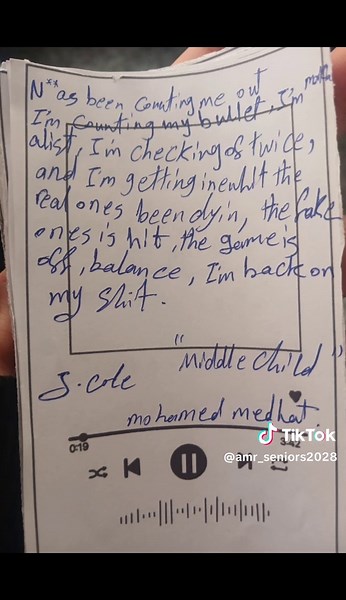 N**as been counting me out
I'm counting my bullet, I'm
a list, I'm checking of twice,
and I'm getting the
real ones been dyin, the fake
ones is hit, the game is
off, balance, I'm back on
my shit.
"Middle child"
J. Cole
mohamed medhat.
TikTok
@amr_seniors2028
0:19
3:42